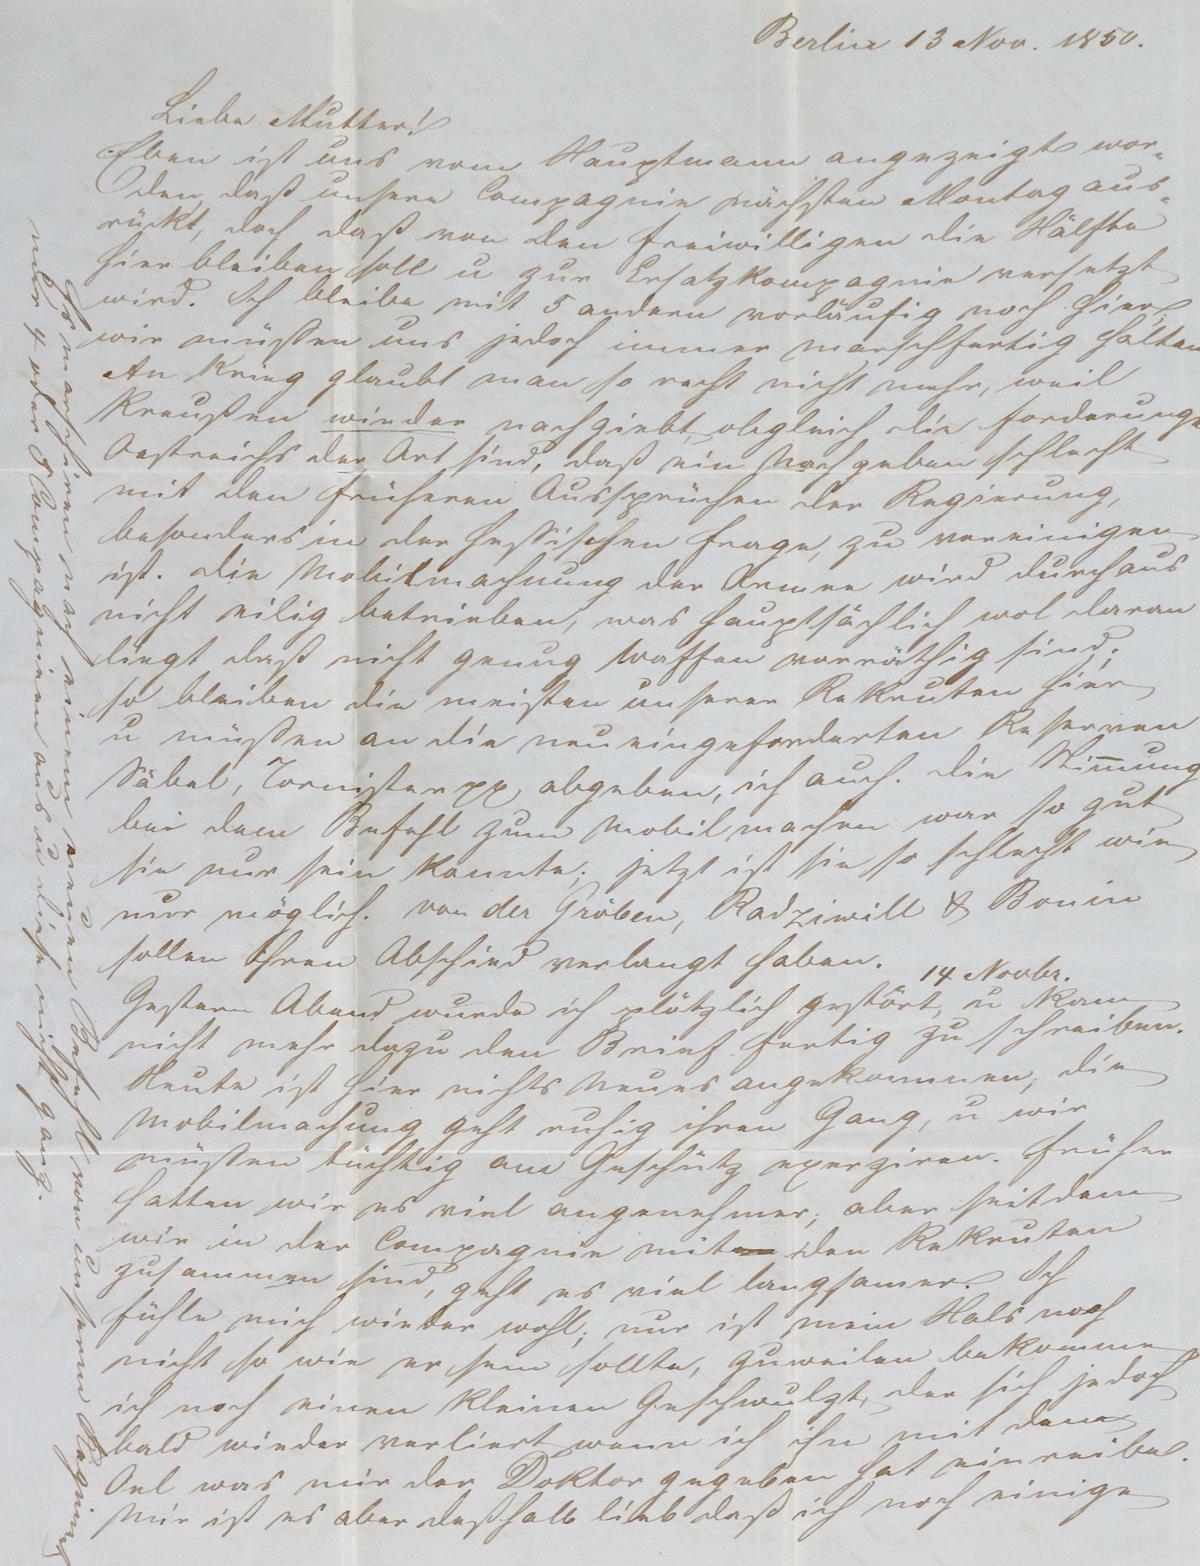 Berlin 13 Nov. 1850.
Liebe Mutter!
Eben ist uns vom Hauptmann angezeigt wor-
den, daß unsere Compagnie nächsten Montag aus-
rückt, doch daß von den Freiwilligen die Hälfte
hier bleiben soll u zur Ersatzkompagnie versetzt
wird. Ich bleibe mit 5 andern vorläufig noch hier,
wir müßen uns jedoch immer marschfertig halten
An Krieg glaubt man so recht nicht mehr, weil
Preußen wieder nachgiebt, obgleich die Forderunge
Oestreichs der Art sind, daß ein Nachgeben schlecht
mit den früheren Aussprüchen der Regierung,
besonders in der hessischen Frage, zu vereinigen
ist. Die Mobilmachnung der Armee wird durchaus
nicht eilig betrieben, was hauptsächlich wol daran
liegt daß nicht genug Waffen vorräthig sind;
so bleiben die meisten unserer Rekruten hier
u müßen an die neu eingeforderten Reserven
Säbel, Tornister pp, abgeben, ich auch. Die Stim̅ung
bei dem Befehl zum Mobilmachen war so gut
sie nur sein konnte; jetzt ist sie so schlecht wie
nur möglich. von der Gröben, Radziwill & Bonin
sollen ihren Abschied verlangt haben.
14 Novbr.
Gestern Abend wurde ich plötzlich gestört, u kam
nicht mehr dazu den Brief fertig zu schreiben.
Heute ist hier nichts Neues angekommen; die
Mobilmachung geht ruhig ihren Gang, u wir
müßen tüchtig am Geschütz exerziren. Früher
hatten wir es viel angenehmer; aber seitdem
wir in der Compagnie mit den Rekruten
zusammen sind, geht es viel langsamer. Ich
fühle mich wieder wohl; nur ist mein Hals noch
nicht so wie er sein sollte, zuweilen bekomme
ich noch einen kleinen Geschwulzt, der sich jedoch
bald wieder verliert wenn ich ihn mit dem
Oel was mir der Doktor gegeben hat einreibe.
Mir ist es aber deßhalb lieb daß ich noch einige
So marschiren nach einem neuen Befehl von unserm Regiment
nur 4 oder 5 Compagnieen aus u diese nicht ganz.